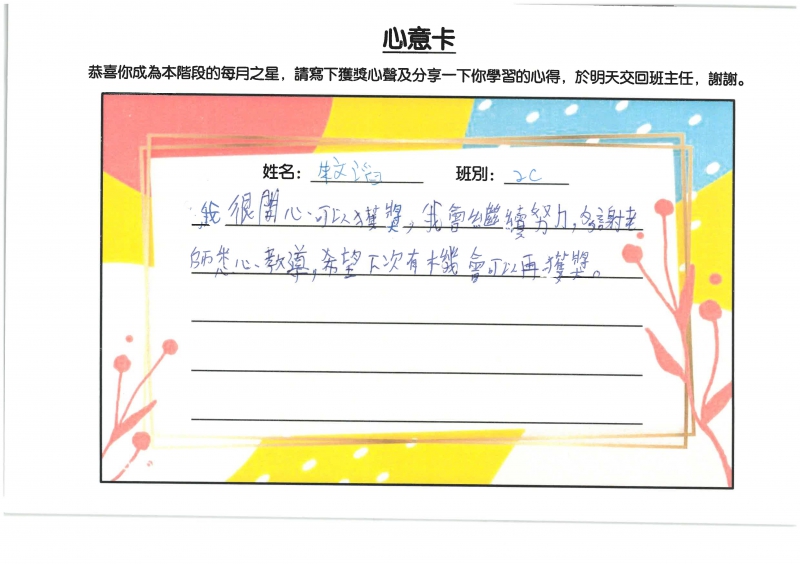 心意卡
恭喜你成為本階段的每月之星，請寫下獲獎心聲及分享一下你學習的心得，於明天交回班主任，謝謝。
姓名： 朱文 班別： 2C
我很開心可以獲獎，我會繼續努力，多謝老
師悉心教導，希望下次有機會可以再獲獎。